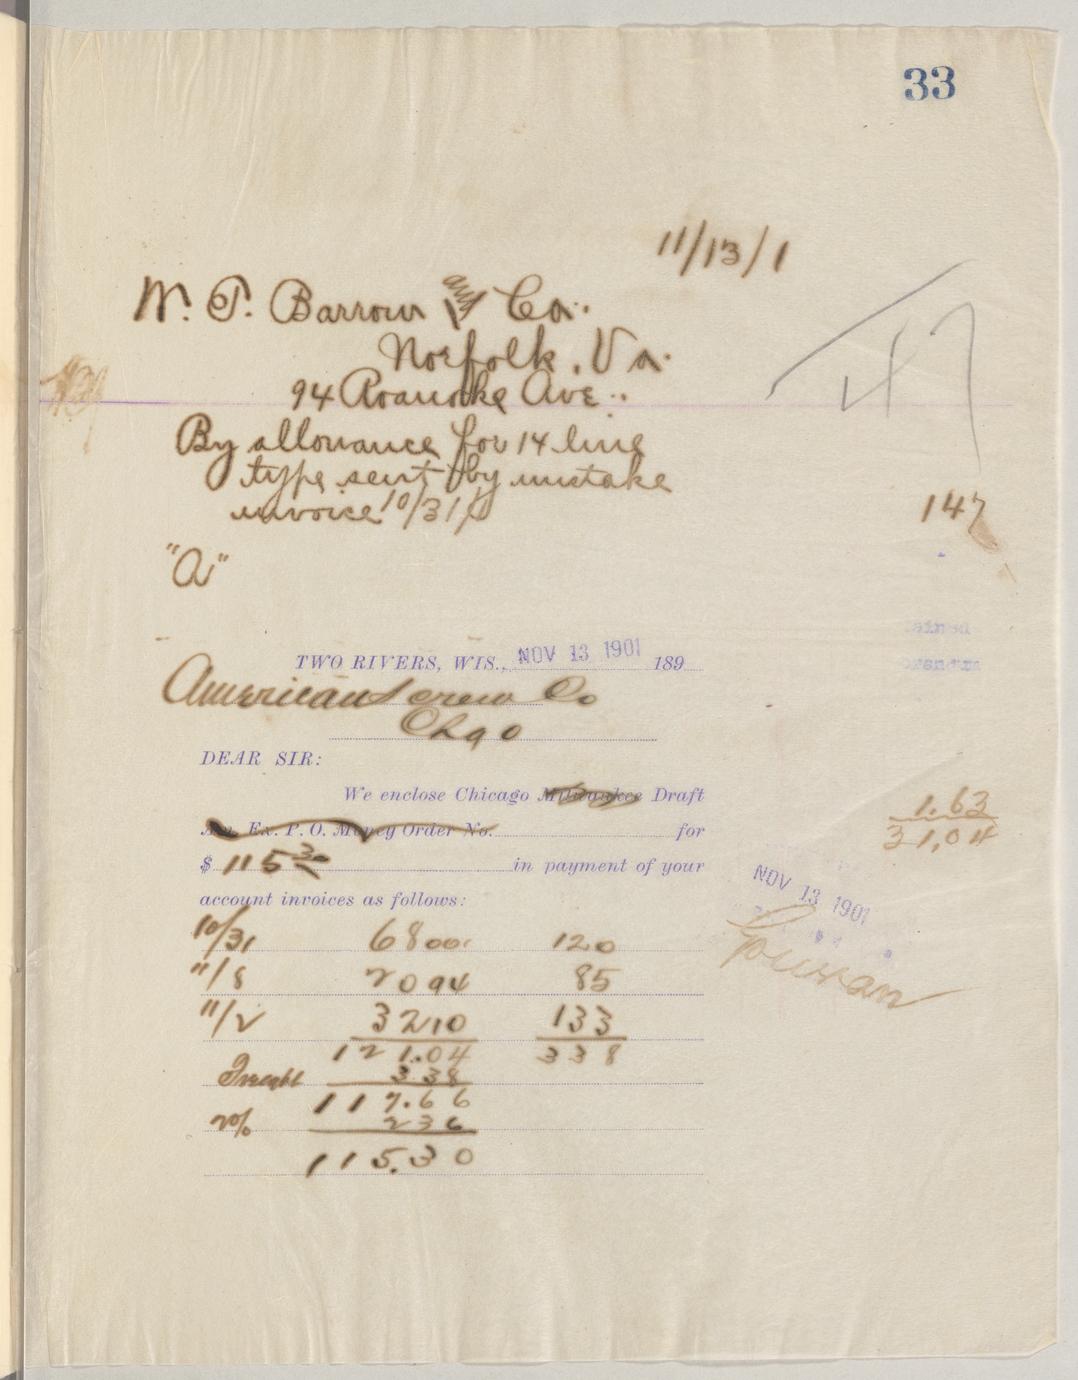 33
11/13/1
W. P. Barrow and Co.
Norfolk, Va.
94 Roanoke Ave.
47
By allowance for 14 line
type sent by mistake
invoice 10/31/1
147
"A"
TWO RIVERS, WIS., NOV 13 1901 189
American Screw Co
Chgo
DEAR SIR:
We enclose Chicago Milwaukee Draft
1.63
Am. Ex. P. O. Money Order No. for
31,04
$ 115 30 in payment of your
NOV 13 1901
account invoices as follows:
10/31 6800 120
11/8 2094 85
11/2 3210 133
121.04 338
Freight 3.38
117.66
2% 236
115.30